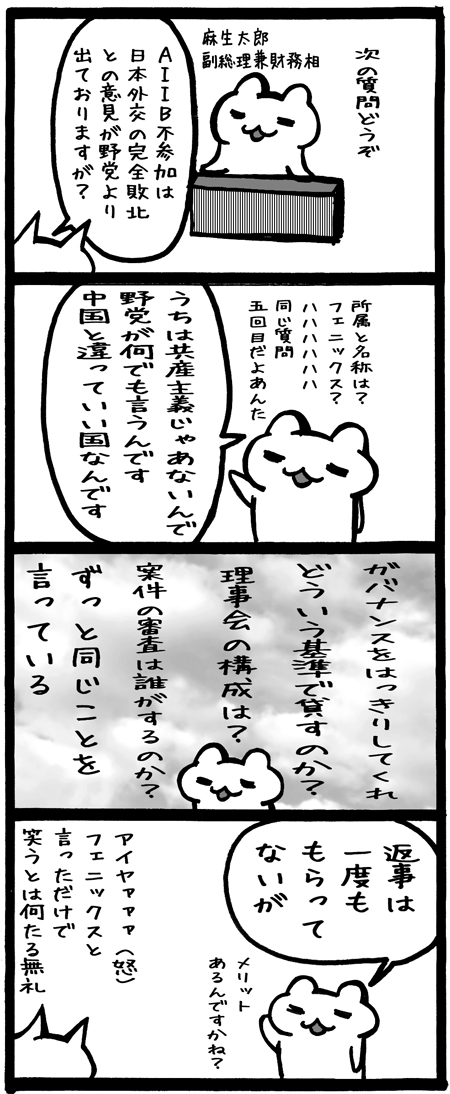 次の質問どうぞ
麻生太郎
副総理兼財務相
ＡＩＩＢ不参加は
日本外交の完全敗北
との意見が野党より
出ておりますが？
所属と名称は？
フェニックス？
ハハハハハハ
同じ質問
五回目だよあんた
うちは共産主義じゃあないんで
野党が何でも言うんです
中国と違っていい国なんです
ガバナンスをはっきりしてくれ
どういう基準で貸すのか？
理事会の構成は？
案件の審査は誰がするのか？
ずっと同じことを
言っている
返事は
一度も
もらって
ないが
メリット
あるんですかね？
アイヤァァァ（怒）
フェニックスと
言っただけで
笑うとは何たる無礼